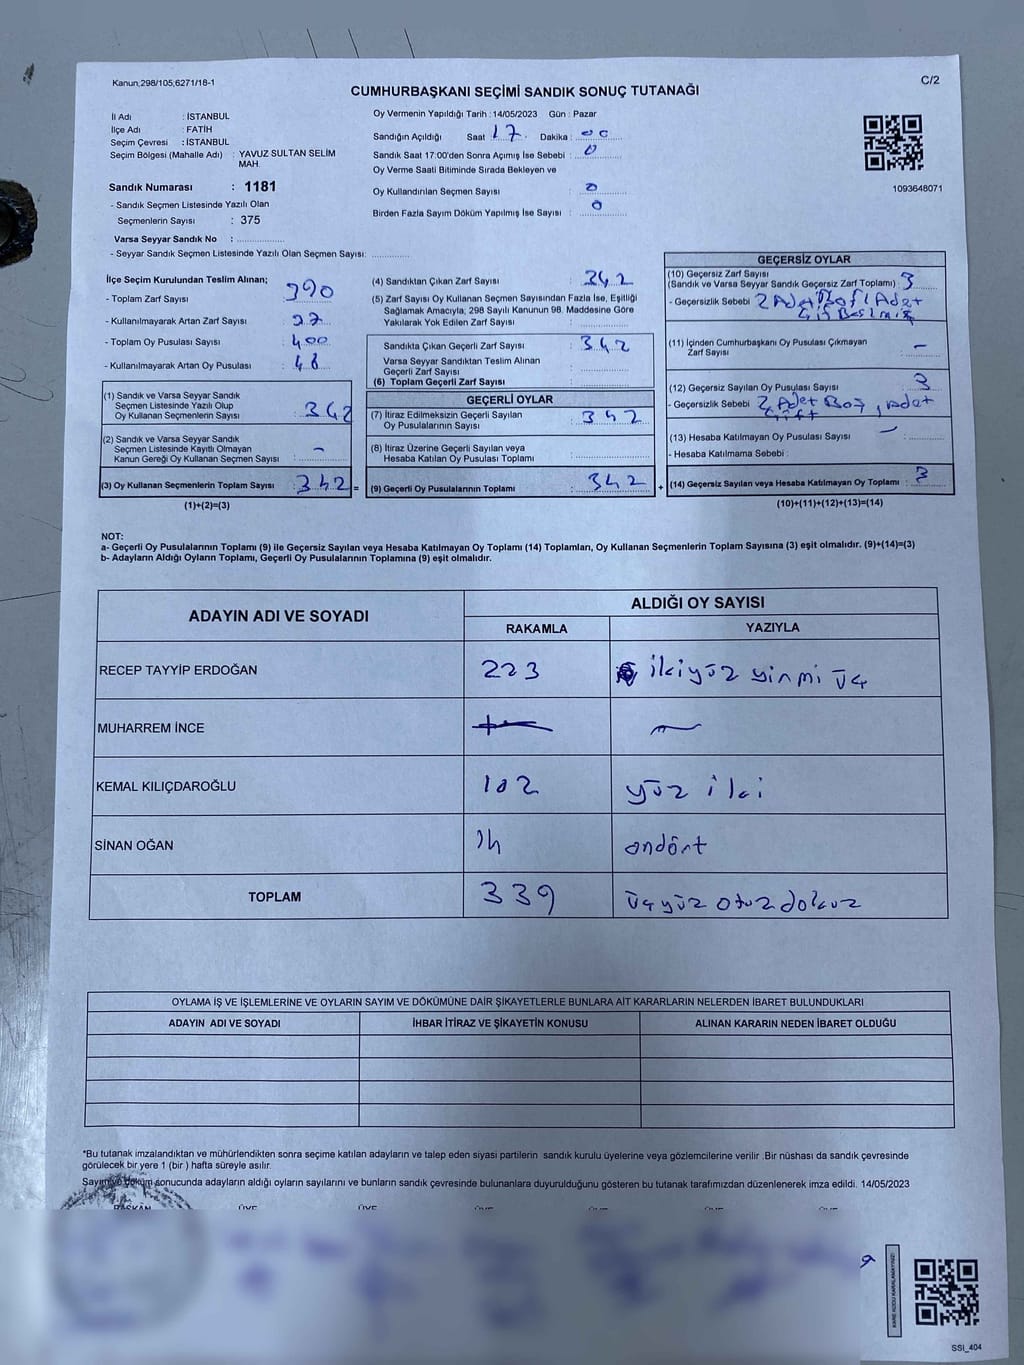 Kanun,298/105,6271/18-1
C/2
CUMHURBAŞKANI SEÇİMİ SANDIK SONUÇ TUTANAĞI
İl Adı : İSTANBUL
İlçe Adı : FATİH
Seçim Çevresi : İSTANBUL
Seçim Bölgesi (Mahalle Adı) : YAVUZ SULTAN SELİM
MAH.
Sandık Numarası : 1181
- Sandık Seçmen Listesinde Yazılı Olan
Seçmenlerin Sayısı : 375
Varsa Seyyar Sandık No :
- Seyyar Sandık Seçmen Listesinde Yazılı Olan Seçmen Sayısı:
Oy Vermenin Yapıldığı Tarih : 14/05/2023 Gün : Pazar
Sandığın Açıldığı Saat 17 Dakika : 00
Sandık Saat 17:00'den Sonra Açımış İse Sebebi : 0
Oy Verme Saati Bitiminde Sırada Bekleyen ve
Oy Kullandırılan Seçmen Sayısı : 0
Birden Fazla Sayım Döküm Yapılmış İse Sayısı : 0
1093648071
İlçe Seçim Kurulundan Teslim Alınan;
- Toplam Zarf Sayısı : 390
- Kullanılmayarak Artan Zarf Sayısı :
- Toplam Oy Pusulası Sayısı : 400
- Kullanılmayarak Artan Oy Pusulası :
(1) Sandık ve Varsa Seyyar Sandık
Seçmen Listesinde Yazılı Olup
Oy Kullanan Seçmenlerin Sayısı : 342
(2) Sandık ve Varsa Seyyar Sandık
Seçmen Listesinde Kayıtlı Olmayan
Kanun Gereği Oy Kullanan Seçmen Sayısı : -
(3) Oy Kullanan Seçmenlerin Toplam Sayısı : 342 =
(1)+(2)=(3)
(4) Sandıktan Çıkan Zarf Sayısı : 342
(5) Zarf Sayısı Oy Kullanan Seçmen Sayısından Fazla İse, Eşitliği
Sağlamak Amacıyla; 298 Sayılı Kanunun 98. Maddesine Göre
Yakılarak Yok Edilen Zarf Sayısı :
Sandıkta Çıkan Geçerli Zarf Sayısı : 342
Varsa Seyyar Sandıktan Teslim Alınan
Geçerli Zarf Sayısı :
(6) Toplam Geçerli Zarf Sayısı :
GEÇERLİ OYLAR
(7) İtiraz Edilmeksizin Geçerli Sayılan
Oy Pusulalarının Sayısı : 342
(8) İtiraz Üzerine Geçerli Sayılan veya
Hesaba Katılan Oy Pusulası Toplamı :
(9) Geçerli Oy Pusulalarının Toplamı : 342 +
GEÇERSİZ OYLAR
(10) Geçersiz Zarf Sayısı
(Sandık ve Varsa Seyyar Sandık Geçersiz Zarf Toplamı) : 3
- Geçersizlik Sebebi : 2 Adet Boş 1 Adet
Çift Basılmış
(11) İçinden Cumhurbaşkanı Oy Pusulası Çıkmayan
Zarf Sayısı : -
(12) Geçersiz Sayılan Oy Pusulası Sayısı : 3
- Geçersizlik Sebebi 2 Adet Boş, 1 adet
Çift
(13) Hesaba Katılmayan Oy Pusulası Sayısı : -
- Hesaba Katılmama Sebebi :
(14) Geçersiz Sayılan veya Hesaba Katılmayan Oy Toplamı : 3
(10)+(11)+(12)+(13)=(14)
NOT:
a- Geçerli Oy Pusulalarının Toplamı (9) ile Geçersiz Sayılan veya Hesaba Katılmayan Oy Toplamı (14) Toplamları, Oy Kullanan Seçmenlerin Toplam Sayısına (3) eşit olmalıdır. (9)+(14)=(3)
b- Adayların Aldığı Oyların Toplamı, Geçerli Oy Pusulalarının Toplamına (9) eşit olmalıdır.
ADAYIN ADI VE SOYADI ALDIĞI OY SAYISI
RAKAMLA YAZIYLA
RECEP TAYYİP ERDOĞAN 223 ikiyüz yirmi üç
MUHARREM İNCE
KEMAL KILIÇDAROĞLU 102 yüz iki
SİNAN OĞAN 14 ondört
TOPLAM 339 üçyüz otuz dokuz
OYLAMA İŞ VE İŞLEMLERİNE VE OYLARIN SAYIM VE DÖKÜMÜNE DAİR ŞİKAYETLERLE BUNLARA AİT KARARLARIN NELERDEN İBARET BULUNDUKLARI
ADAYIN ADI VE SOYADI İHBAR İTİRAZ VE ŞİKAYETİN KONUSU ALINAN KARARIN NEDEN İBARET OLDUĞU
*Bu tutanak imzalandıktan ve mühürlendikten sonra seçime katılan adayların ve talep eden siyasi partilerin sandık kurulu üyelerine veya gözlemcilerine verilir .Bir nüshası da sandık çevresinde
görülecek bir yere 1 (bir ) hafta süreyle asılır.
Sayım ve döküm sonucunda adayların aldığı oyların sayılarını ve bunların sandık çevresinde bulunanlara duyurulduğunu gösteren bu tutanak tarafımızdan düzenlenerek imza edildi. 14/05/2023
BAŞKAN ÜYE ÜYE
SSI_404